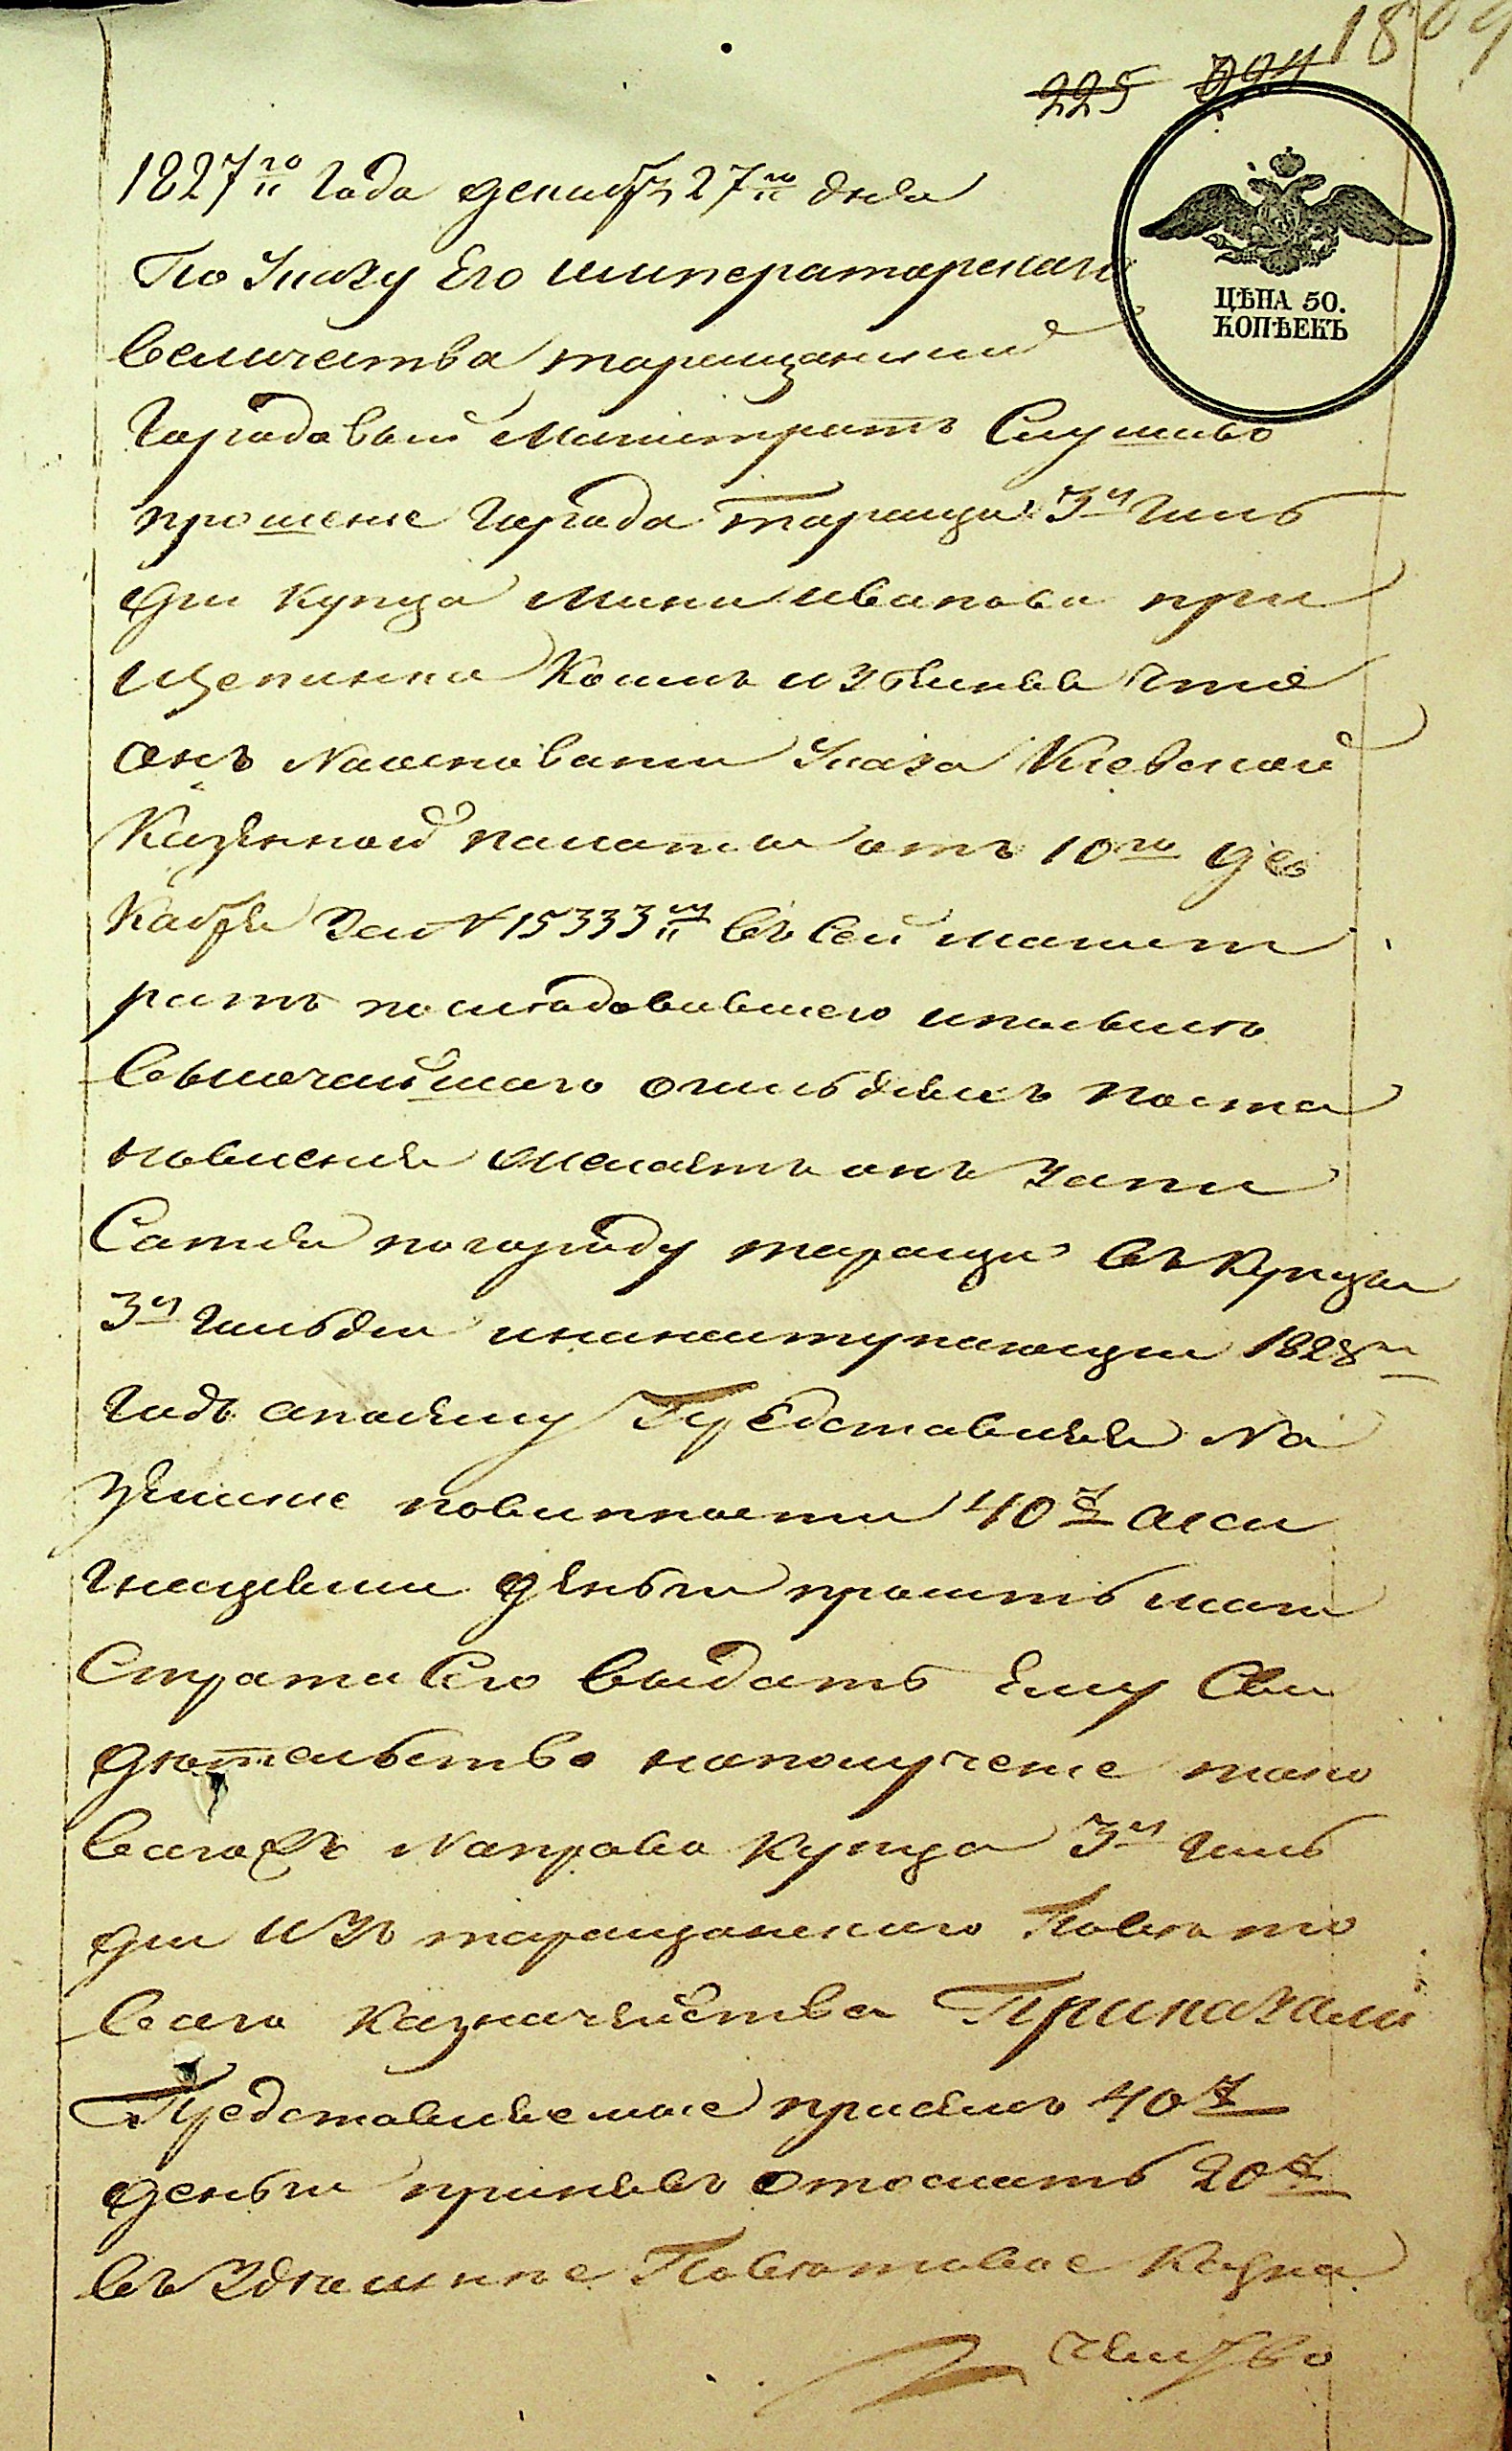 1809
225 224
ЦѢНА 50.
КОПѢЕКЪ
1827го Года декабря 27го дня
По Указу Его императорскаго
величества таращанский
Городавый Магистратъ Слушаво
прошение Города Таращи 3й Гиль
дии купца Мики иванова при
щепинка Коимъ изъясняя что
онъ Наоснованіи Указа Киевской
Казенной палаты отъ 10го де
Кабря За № 15333м въ Сей магист
ратъ последовавшего
высочайшаго объ гильдіяхъ поста
новления желаетъ онъ запи
Сатся погораду таращи въ Купцы
3й Гильдии инанаступающии 1828й
Годъ апосему Представляя На
земские повинности 40 р аси
гнациями деньги проситъ маги
Страта Сего выдать Ему Сви
детельство наполучение тако
ваго жъ Направо Купца 3й Гиль
дии ИЗъ таращанскаго Повѣто
ваго казначейства Приказали
Представляемые присемъ 40 р
деньги принявъ отослать 20 р
въ Здешнее Поветовое Казна
чейство